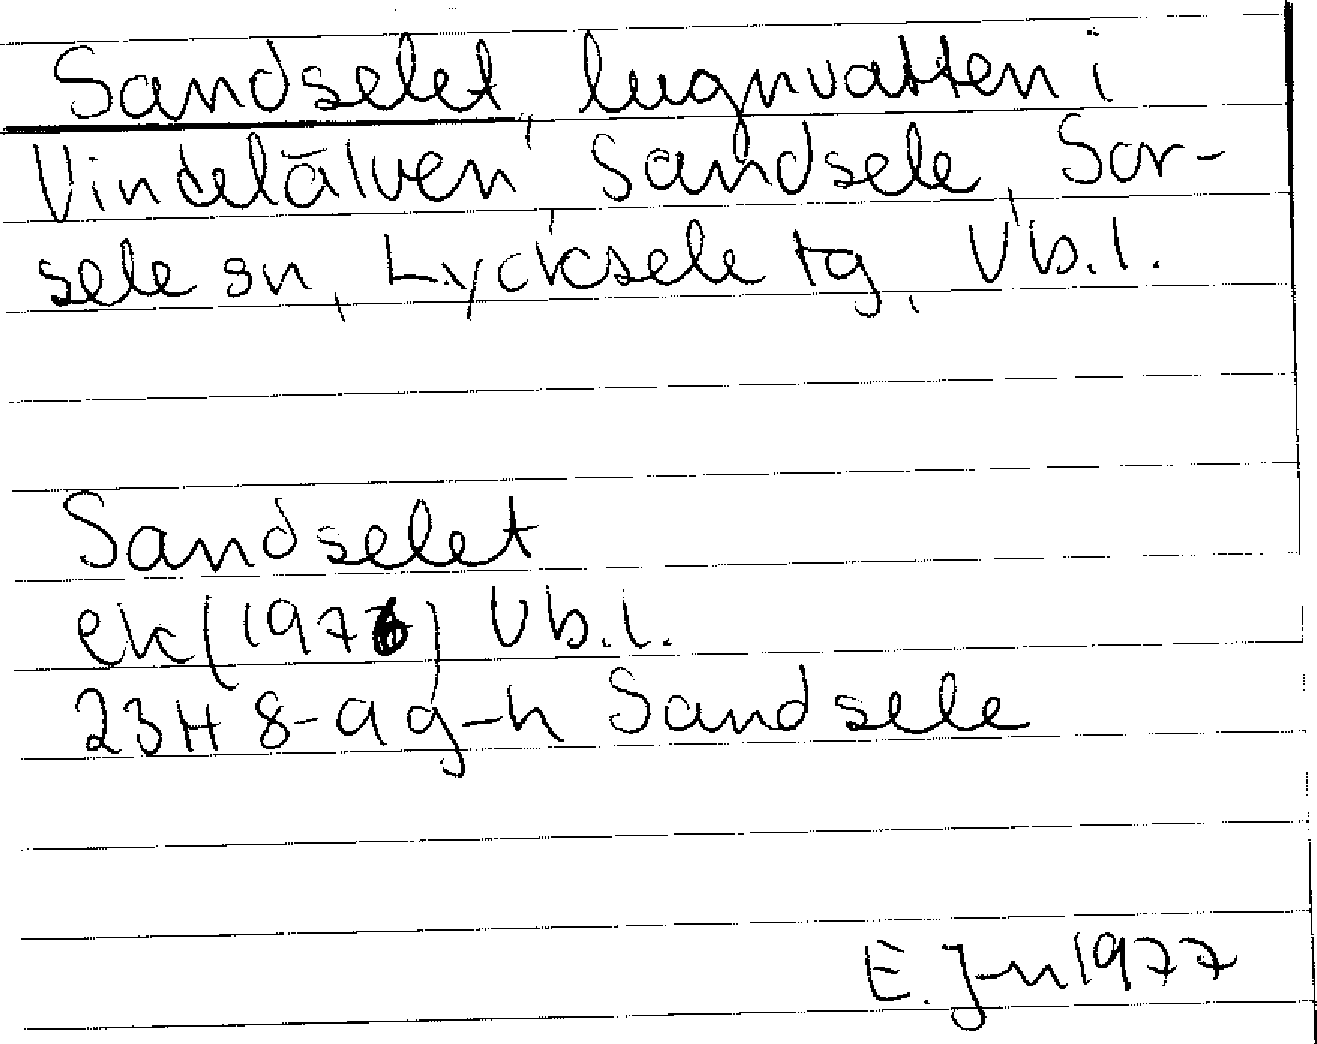 Sandselet, lugnvatten i
Vindelälven, Sandsele, Sor-
sele sn, Lycksele tg, Vb.l.
Sandselet
ek (1976) Vb.l.
23H 8-9 g-h Sandsele
E. J-n 1977